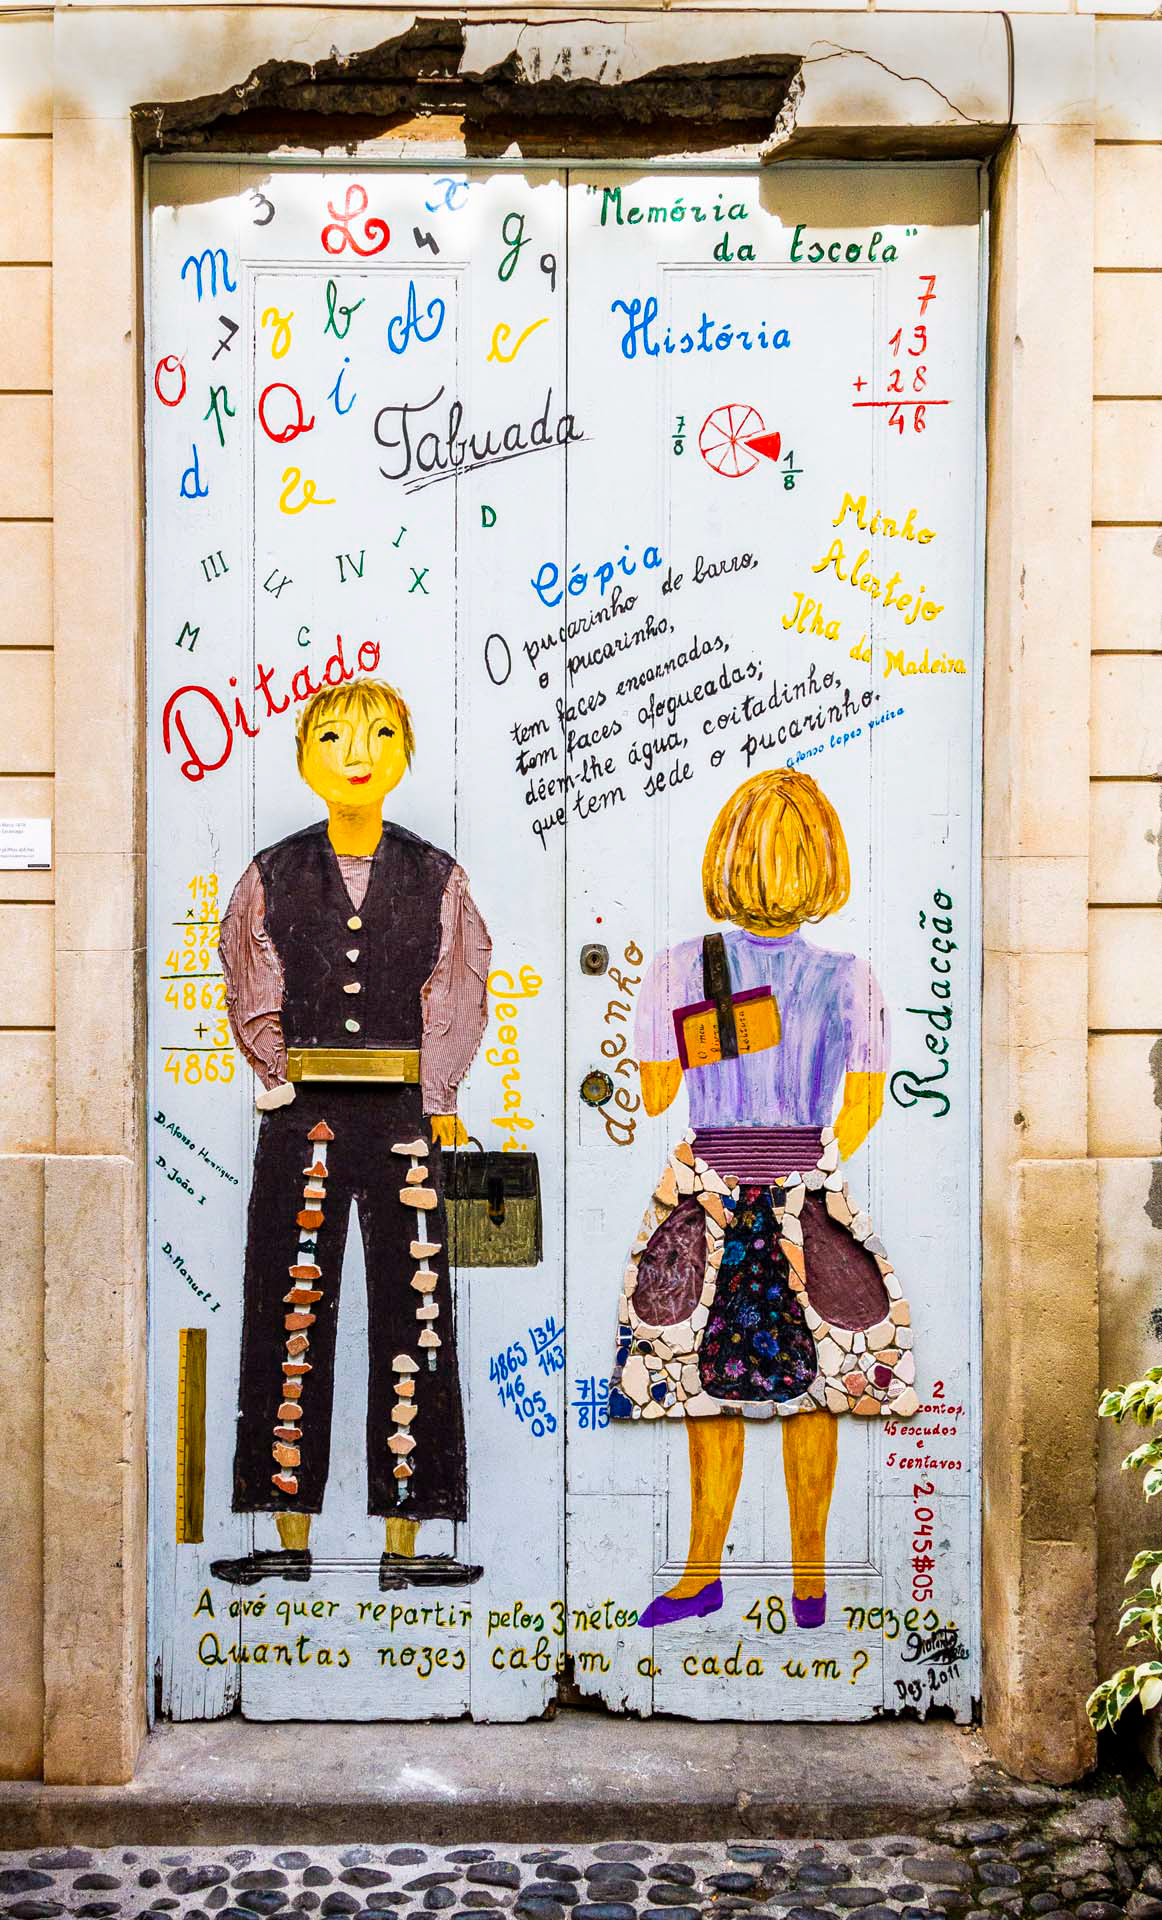 3
L
x
4
g
9
"Memória
da Escola"
m
7
z
b
A
c
História
7
13
+ 28
48
o
p
Q
i
d
e
Tabuada
7/8
1/8
D
III
IX
IV
I
X
M
C
Minho
Alentejo
Ilha da Madeira
Cópia
O pucarinho de barro,
o pucarinho,
tem faces encarnadas,
tem faces afogueadas;
dêem-lhe água, coitadinho,
que tem sede o pucarinho.
afonso lopes vieira
Ditado
143
x 34
572
429
4862
+ 3
4865
Geografi
desenho
O meu
livro
Leitura
Redacção
D. Afonso Henriques
D. João I
D. Manuel I
4865 34
146 143
105
03
7 5
8 5
2
contos,
45 escudos
e
5 centavos
2.045$05
A avó quer repartir pelos 3 netos 48 nozes.
Quantas nozes cabem a cada um?
Dez. 2011